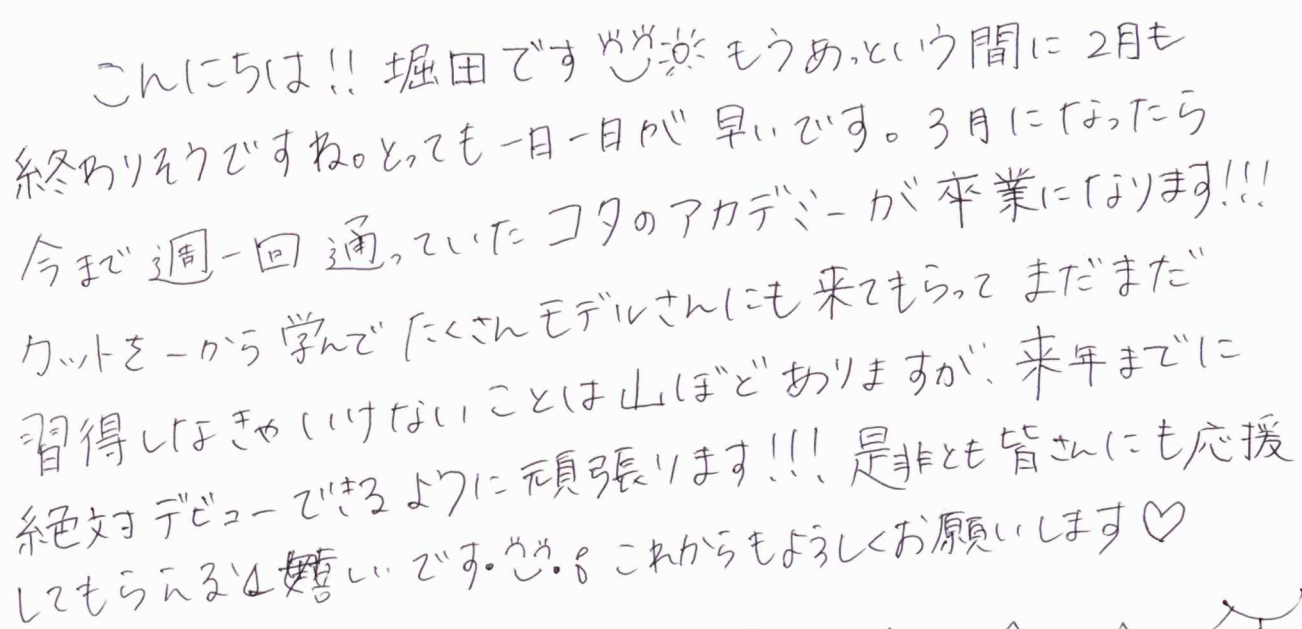 こんにちは!! 堀田です もうあっという間に 2月も
終わりそうですね。とっても一日一日が 早いです。3月になったら
今まで週一回 通っていた コタのアカデミーが 卒業になります!!!
カットを一から学んで たくさんモデルさんにも 来てもらって まだまだ
習得しなきゃいけないことは山ほどありますが、来年までに
絶対デビューできるように頑張ります!!! 是非とも皆さんにも応援
してもらえると嬉しいです。これからもよろしくお願いします♡